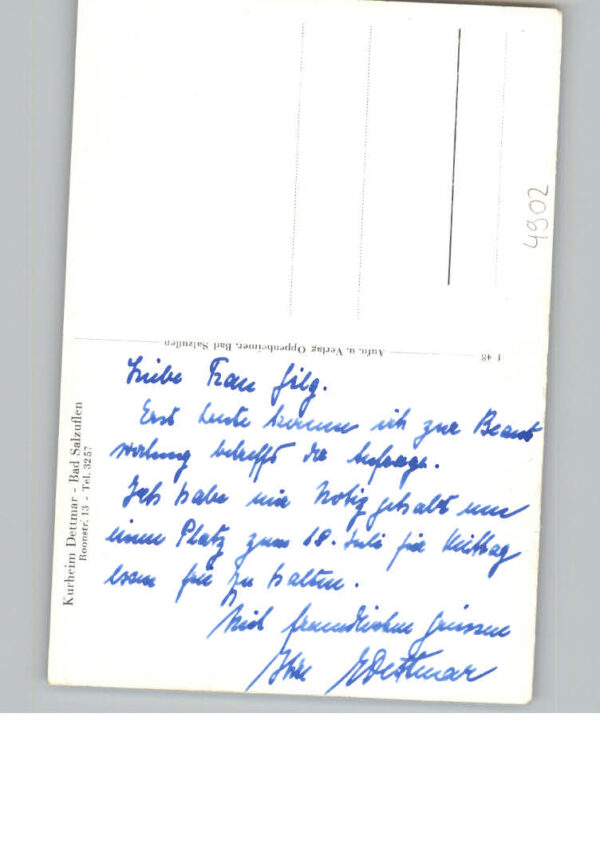 4902
Aufn. u. Verlag Oppenheimer, Bad Salzuflen
I 48
Kurheim Dettmar - Bad Salzuflen
Roonstr. 13 - Tel. 3257
Liebe Frau Gilg.
Erst heute komme ich zur Beant
wortung betrefft der Anfrage.
Ich habe mir Notiz gehabt um
einen Platz zum 18. Juli für Mittag
essen frei zu halten.
Mit freundlichen Grüssen
Ihre EDettmar